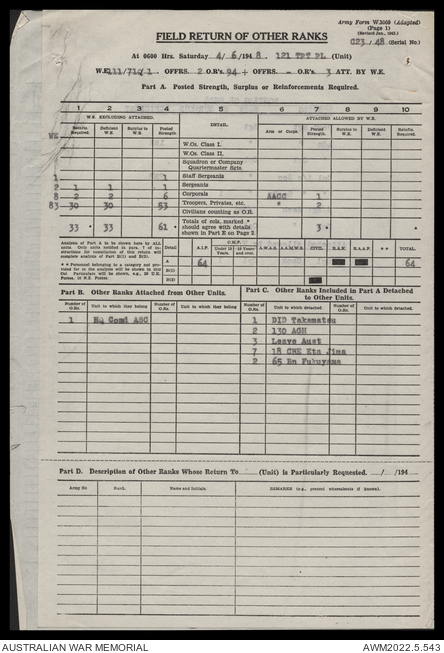 Army Form W.3009 (Adapted)
(Page 1)
(Revised Jan., 1945.)
FIELD RETURN OF OTHER RANKS
C23/48 (Serial No.)
At 0600 Hrs. Saturday 4/6/1948. 121 TPT PL (Unit)
W.E. 111/712/1 OFFRS. 2 O.R's. 94 + OFFRS. - O.R's. 3 ATT. BY W.E.
Part A. Posted Strength, Surplus or Reinforcements Required.
1 2 3 4 5 6 7 8 9 10
W.E. EXCLUDING ATTACHED. ATTACHED ALLOWED BY W.E.
Reinfts Required. Deficient W.E. Surplus to W.E. Posted Strength. DETAIL. Arm or Corps. Posted Strength. Deficient W.E. Surplus to W.E. Reinfts Required.
WE
W.Os. Class I.
W.Os. Class II.
Squadron or Company Quartermaster Sgts.
1 1 Staff Sergeants
2 1 1 1 Sergeants
8 2 2 6 Corporals AACC 1
83 30 30 53 Troopers, Privates, etc. " 2
Civilians counting as O.R.
33 * 33 61 * Totals of cols. marked * should agree with details shown in Part E on Page 2 3 *
Analysis of Part A to be shown here by ALL Units. Only units notified in para. 7 of instructions for compilation of this return will complete analysis of Part B(i) and B(ii).
* * Personnel belonging to a category not provided for in the analysis will be shown in this Col. Particulars will be shown, e.g., 25 U.K. Forces, 16 N.Z. Forces.
Detail A.I.F. C.M.F. Under 19 Years. 19 Years and over. A.W.A.S. A.A.M.W.S. CIVIL. R.A.N. R.A.A.F. * * TOTAL.
A 64 64
B(I)
B(II)
Part B. Other Ranks Attached from Other Units.
Part C. Other Ranks Included in Part A Detached to Other Units.
Number of O.Rs. Unit to which they belong Number of O.Rs. Unit to which they belong Number of O.Rs. Unit to which detached. Number of O.Rs. Unit to which detached.
1 HQ Comd ASC 1 DID Takamatsu
2 130 AGH
3 Leave Aust
7 18 CRE Eta Jima
2 65 Bn Fukuyama
Part D. Description of Other Ranks Whose Return To (Unit) is Particularly Requested. / /194
Army No Rank. Name and Initials. REMARKS (e.g., present whereabouts if known).
AUSTRALIAN WAR MEMORIAL AWM2022.5.543